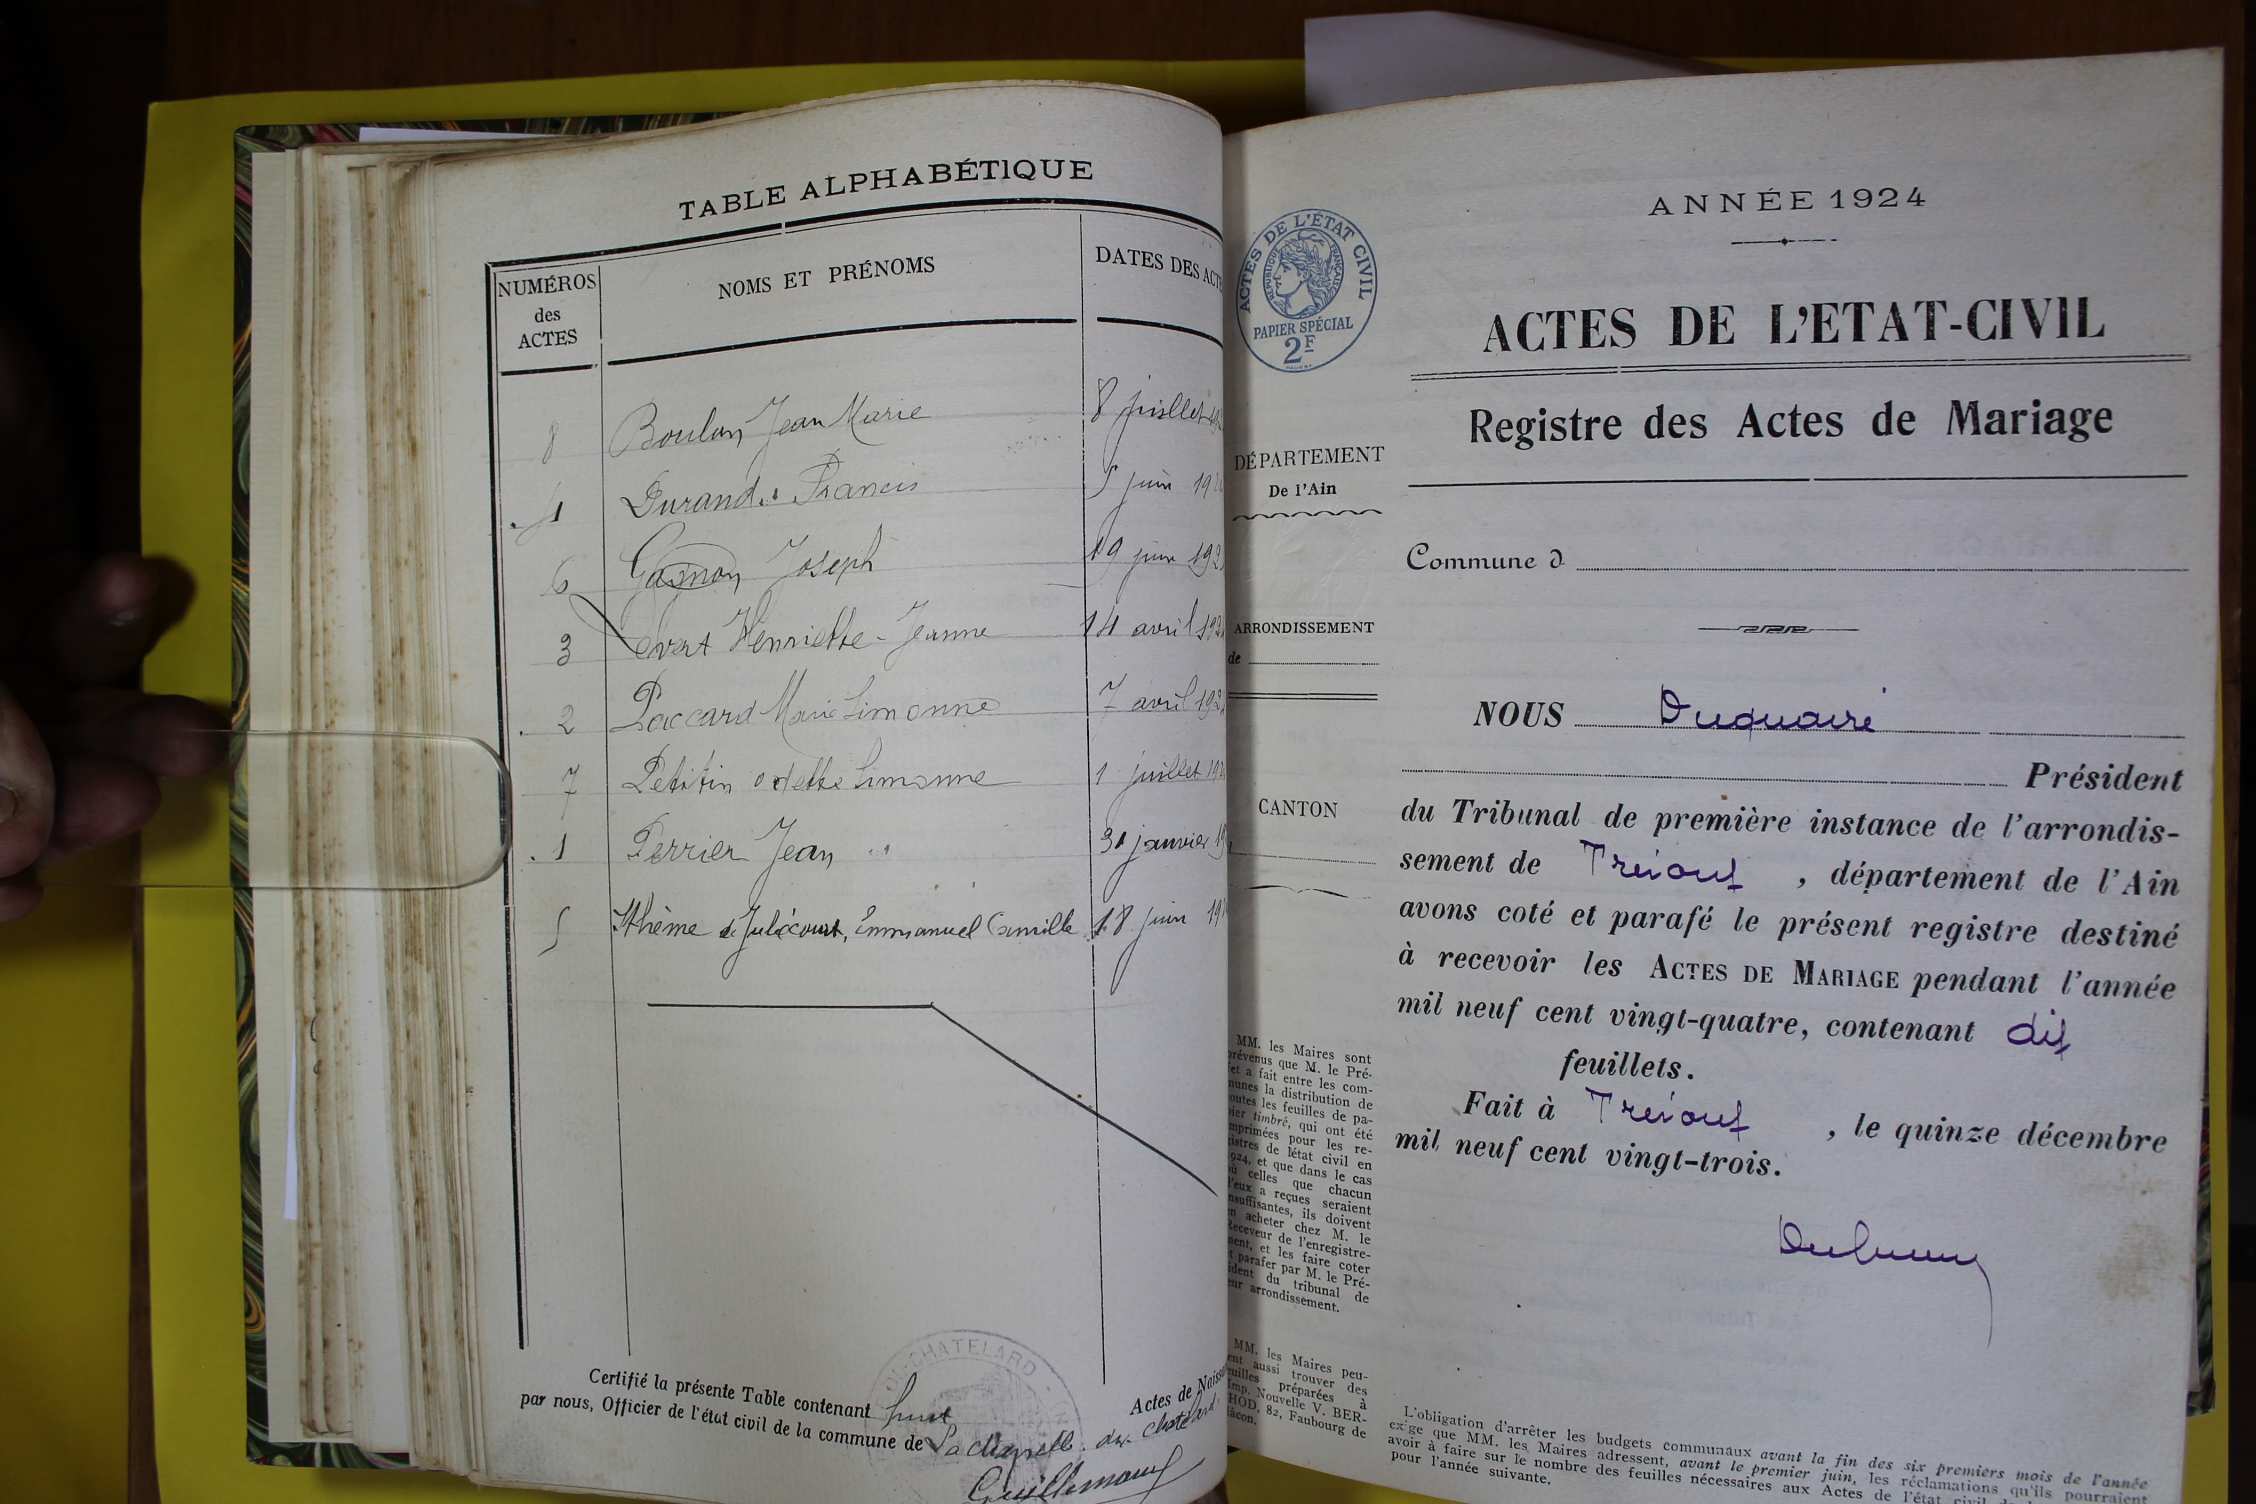 TABLE ALPHABÉTIQUE
NUMÉROS des ACTES
NOMS ET PRÉNOMS
DATES DES ACTE
8 Boulon Jean Marie 8 juillet
4 Durand Francis 5 juin
6 Gagnon Joseph 19 juin
3 Jovert Henriette-Jeanne 14 avril
2 Paccard Marie Simonne 7 avril
7 Petitin Odette Simonne 1 juillet
. 1 Perrier Jean 31 janvier
5 Thème de Julécourt, Emmanuel Camille 18 juin
Certifié la présente Table contenant huit Actes de Naiss
par nous, Officier de l'état civil de la commune de La chapelle du chatelard.
DU-CHATELARD
Guillemaud
ANNÉE 1924
ACTES DE L'ÉTAT CIVIL
RÉPUBLIQUE FRANÇAISE
PAPIER SPÉCIAL
2F
ACTES DE L'ETAT-CIVIL
Registre des Actes de Mariage
DÉPARTEMENT
De l'Ain
Commune d
ARRONDISSEMENT
de
NOUS Duquaire
Président
CANTON
du Tribunal de première instance de l'arrondis-
sement de Trévoux, département de l'Ain
avons coté et parafé le présent registre destiné
à recevoir les ACTES DE MARIAGE pendant l'année
mil neuf cent vingt-quatre, contenant dix
feuillets.
Fait à Trévoux, le quinze décembre
mil neuf cent vingt-trois.
MM. les Maires sont
prévenus que M. le Pré-
fet a fait entre les com-
munes la distribution de
toutes les feuilles de pa-
pier timbré, qui ont été
imprimées pour les re-
gistres de létat civil en
1924, et que dans le cas
où celles que chacun
d'eux a reçues seraient
insuffisantes, ils doivent
en acheter chez M. le
Receveur de l'enregistre-
ment, et les faire coter
et parafer par M. le Pré-
sident du tribunal de
leur arrondissement.
MM. les Maires peu-
vent aussi trouver des
feuilles préparées à
Imp. Nouvelle V. BER-
HOD, 82, Faubourg de
Mâcon.
L'obligation d'arrêter les budgets communaux avant la fin des six premiers mois de l'année
exige que MM. les Maires adressent, avant le premier juin, les réclamations qu'ils pourraient
avoir à faire sur le nombre des feuilles nécessaires aux Actes de l'état civil
pour l'année suivante.